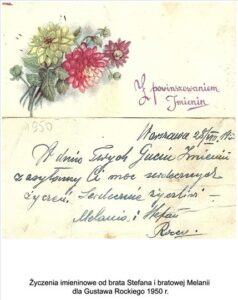 Z powinszowaniem
Imienin
1950
Warszawa 28/VII.
W dniu Twych Guciu Imienin
zasyłamy Ci moc serdecznych
życzeń. Serdecznie życzliwi –
Melania i Stefan
Roccy.
Życzenia imieninowe od brata Stefana i bratowej Melanii
dla Gustawa Rockiego 1950 r.